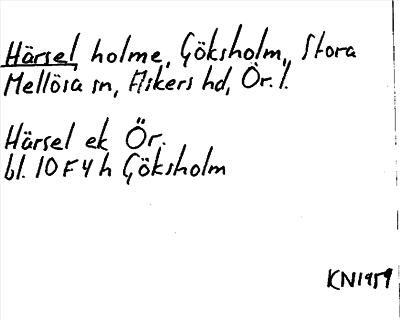 Härsel holme, Göksholm, Stora
Mellösa sn, Askers hd, Ör. l.
Härsel ek Ör.
bl. 10 F 4 h Göksholm
KN 1959